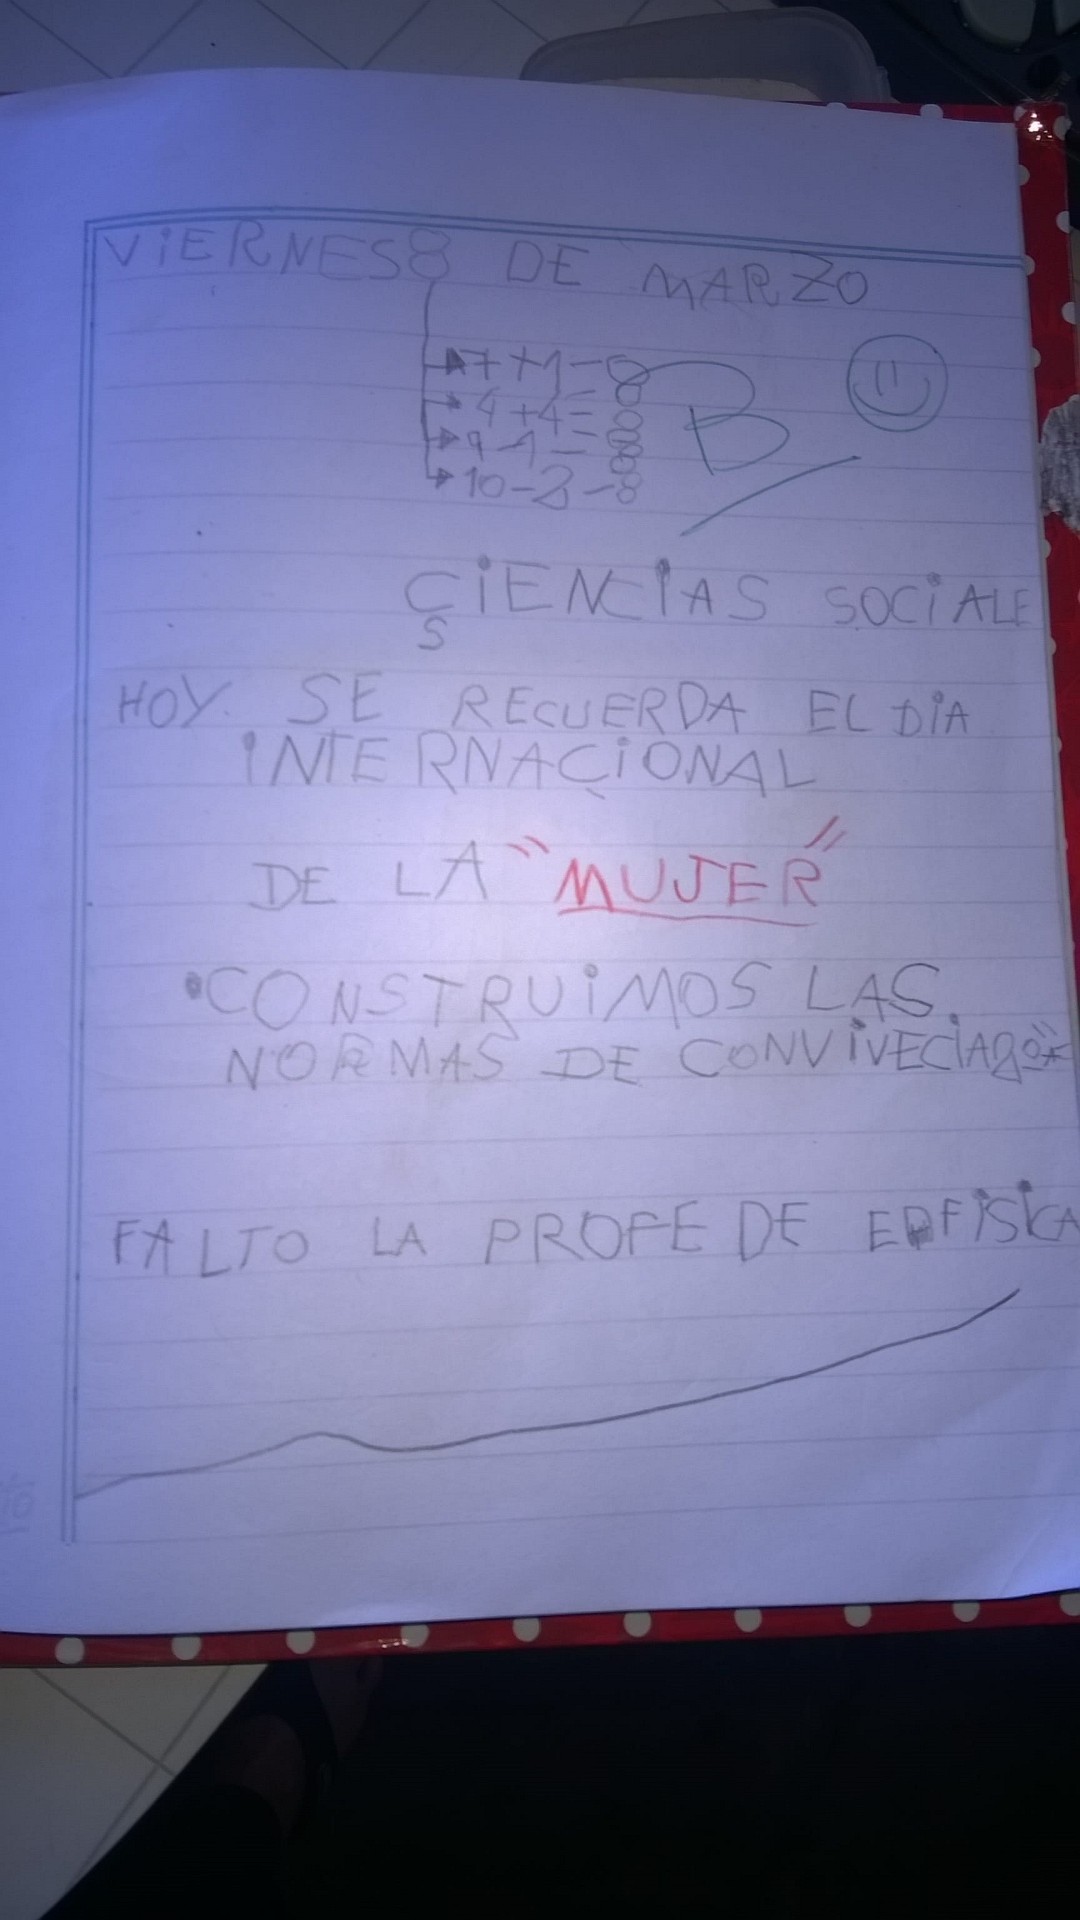 VIERNES 8 DE MARZO
7+1=8
4+4=8
9-1=8
10-2=8
B
CIENCIAS SOCIALE
S
HOY SE RECUERDA EL DIA
INTERNACIONAL
DE LA "MUJER"
•CONSTRUIMOS LAS
NORMAS DE CONVIVECIA
FALTO LA PROFE DE ED FISICA